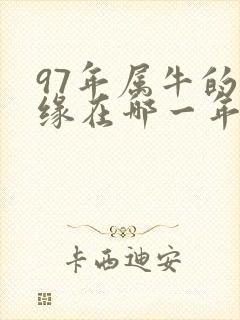 97年属牛的
缘在哪一年
卡西迪安